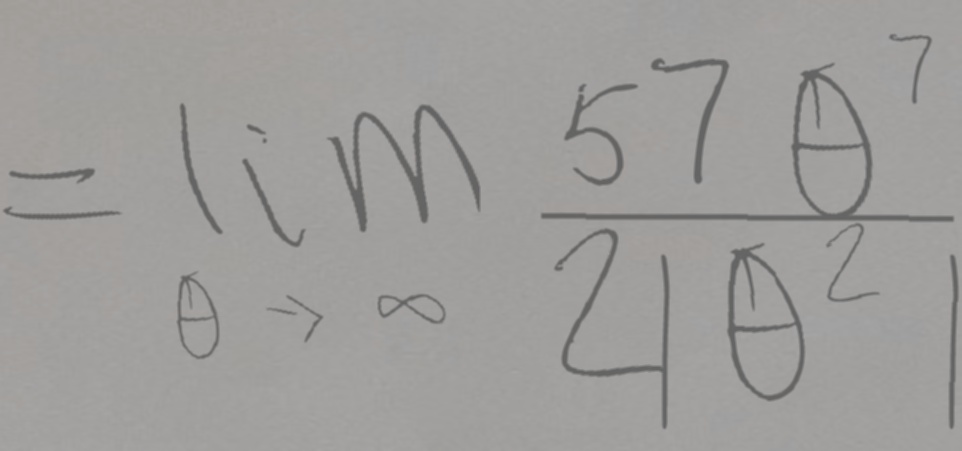 = \lim_{\theta \to \infty} \frac{57\theta^7}{2|\theta^2|}